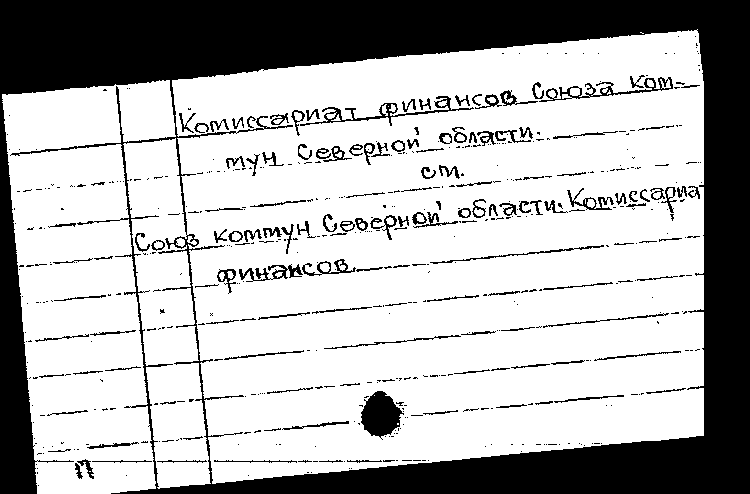 Комиссариат финансов Союза ком-
мун Северной области.
см.
Союз коммун Северной области. Комиссариат
финансов.
п